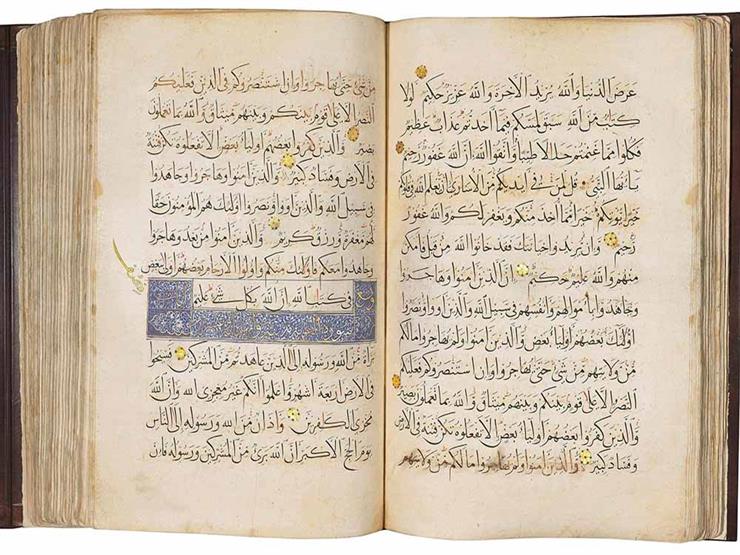 عرض الدنيا والله يريد الآخرة والله عزيز حكيم لولا
كتاب من الله سبق لمسكم فيما اخذتم عذاب عظيم
فكلوا مما غنمتم حلالا طيبا واتقوا الله ان الله غفور رحيم
يا ايها النبي قل لمن في ايديكم من الاسارى ان يعلم الله في قلوبكم
خيرا يؤتكم خيرا مما اخذ منكم ويغفر لكم والله غفور
رحيم وان يريدوا خيانتك فقد خانوا الله من قبل فامكن
منهم والله عليم حكيم ان الذين امنوا وهاجروا
وجاهدوا باموالهم وانفسهم في سبيل الله والذين اووا ونصروا
اولئك بعضهم اولياء بعض والذين امنوا ولم يهاجروا مالكم
من ولايتهم من شئ حتى يهاجروا وان استنصروكم فعليكم
النصر الا على قوم بينكم وبينهم ميثاق والله بما تعملون بصير
والذين كفروا بعضهم اولياء بعض الا تفعلوه تكن فتنة في الارض
وفساد كبير والذين امنوا ولم يهاجروا مالكم من ولايتهم
من شئ حتى يهاجروا وان استنصروكم في الدين فعليكم
النصر الا على قوم بينكم وبينهم ميثاق والله بما تعملون
بصير والذين كفروا بعضهم اولياء بعض الا تفعلوه تكن فتنة
في الارض وفساد كبير والذين امنوا وهاجروا وجاهدوا
في سبيل الله والذين اووا ونصروا اولئك هم المؤمنون حقا
لهم مغفرة ورزق كريم والذين امنوا من بعد وهاجروا
وجاهدوا معكم فاولئك منكم واولوا الارحام بعضهم اولى ببعض
في كتاب الله ان الله بكل شئ عليم
سورة التوبة
براءة من الله ورسوله الى الذين عاهدتم من المشركين فسيحوا
في الارض اربعة اشهر واعلموا انكم غير معجزي الله وان الله
مخزي الكافرين واذان من الله ورسوله الى الناس
يوم الحج الاكبر ان الله برئ من المشركين ورسوله فان